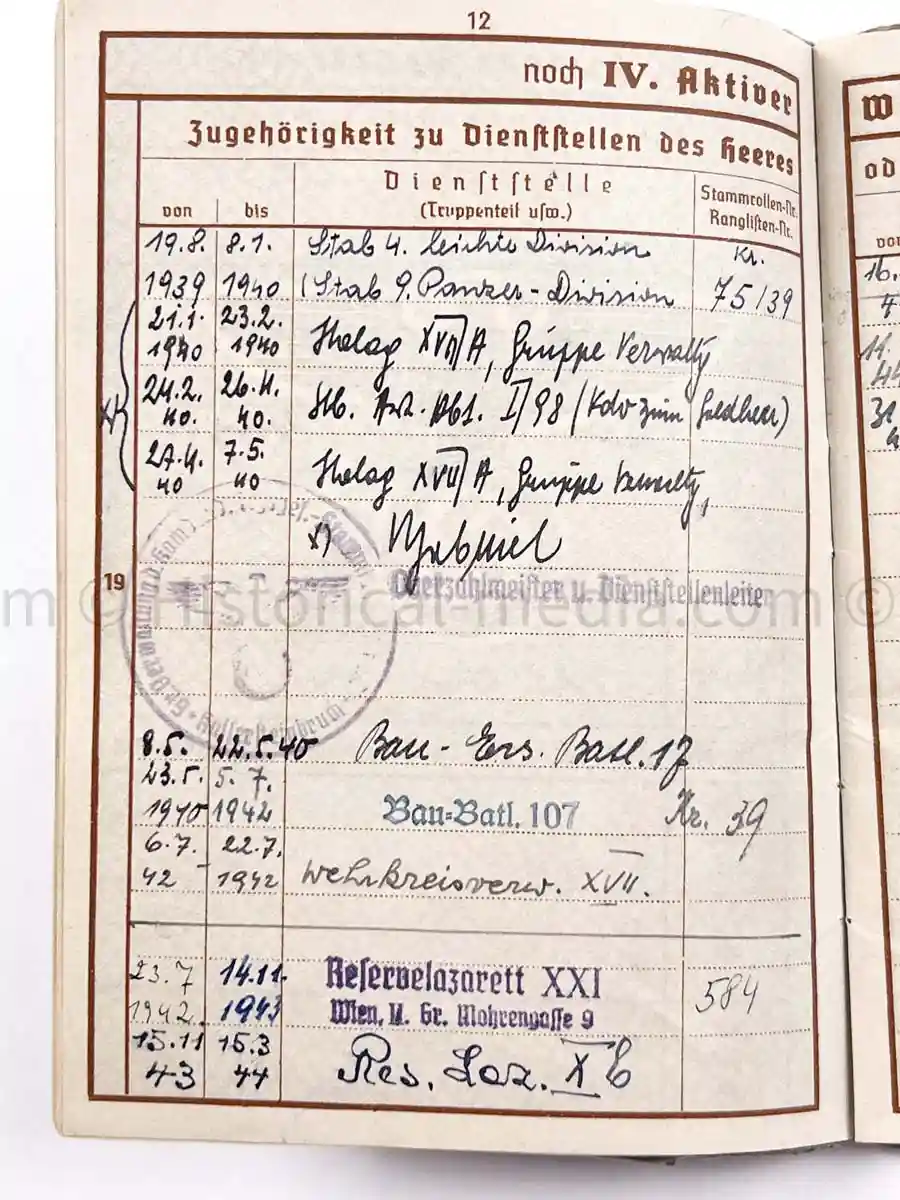 12
noch IV. Aktiver
Zugehörigkeit zu Dienststellen des Heeres
von
bis
Dienststelle
(Truppenteil usw.)
Stammrollen-Nr.
Ranglisten-Nr.
19.8. 8.1. Stab 4. leichte Division Kr.
1939 1940 (Stab 9. Panzer-Division 75/39
21.1. 23.2.
1940 1940 XVII/A, Gruppe Verwaltg
24.2. 26.4.
40. 40. Abt. I/98 (Kdo zum Feldheer)
27.4. 7.5.
40 40 XVII/A, Gruppe Verwaltg,
x) Gabriel
19
Oberzahlmeister u. Dienststellenleiter
m © Historical-media.com ©
8.5. 22.5.40 Bau-Ers. Batl. 17
23.5. 5.7.
1940 1942 Bau-Batl. 107 Nr. 39
6.7. 22.7.
42 – 1942 Wehrkreisverw. XVII.
23.7 14.11. Reservelazarett XXI
1942. 1943 Wien, II. Gr. Mohrengasse 9 584
15.11 15.3
43 44 Res. Laz. X b
W
od
von
16.
4
11.
44
31